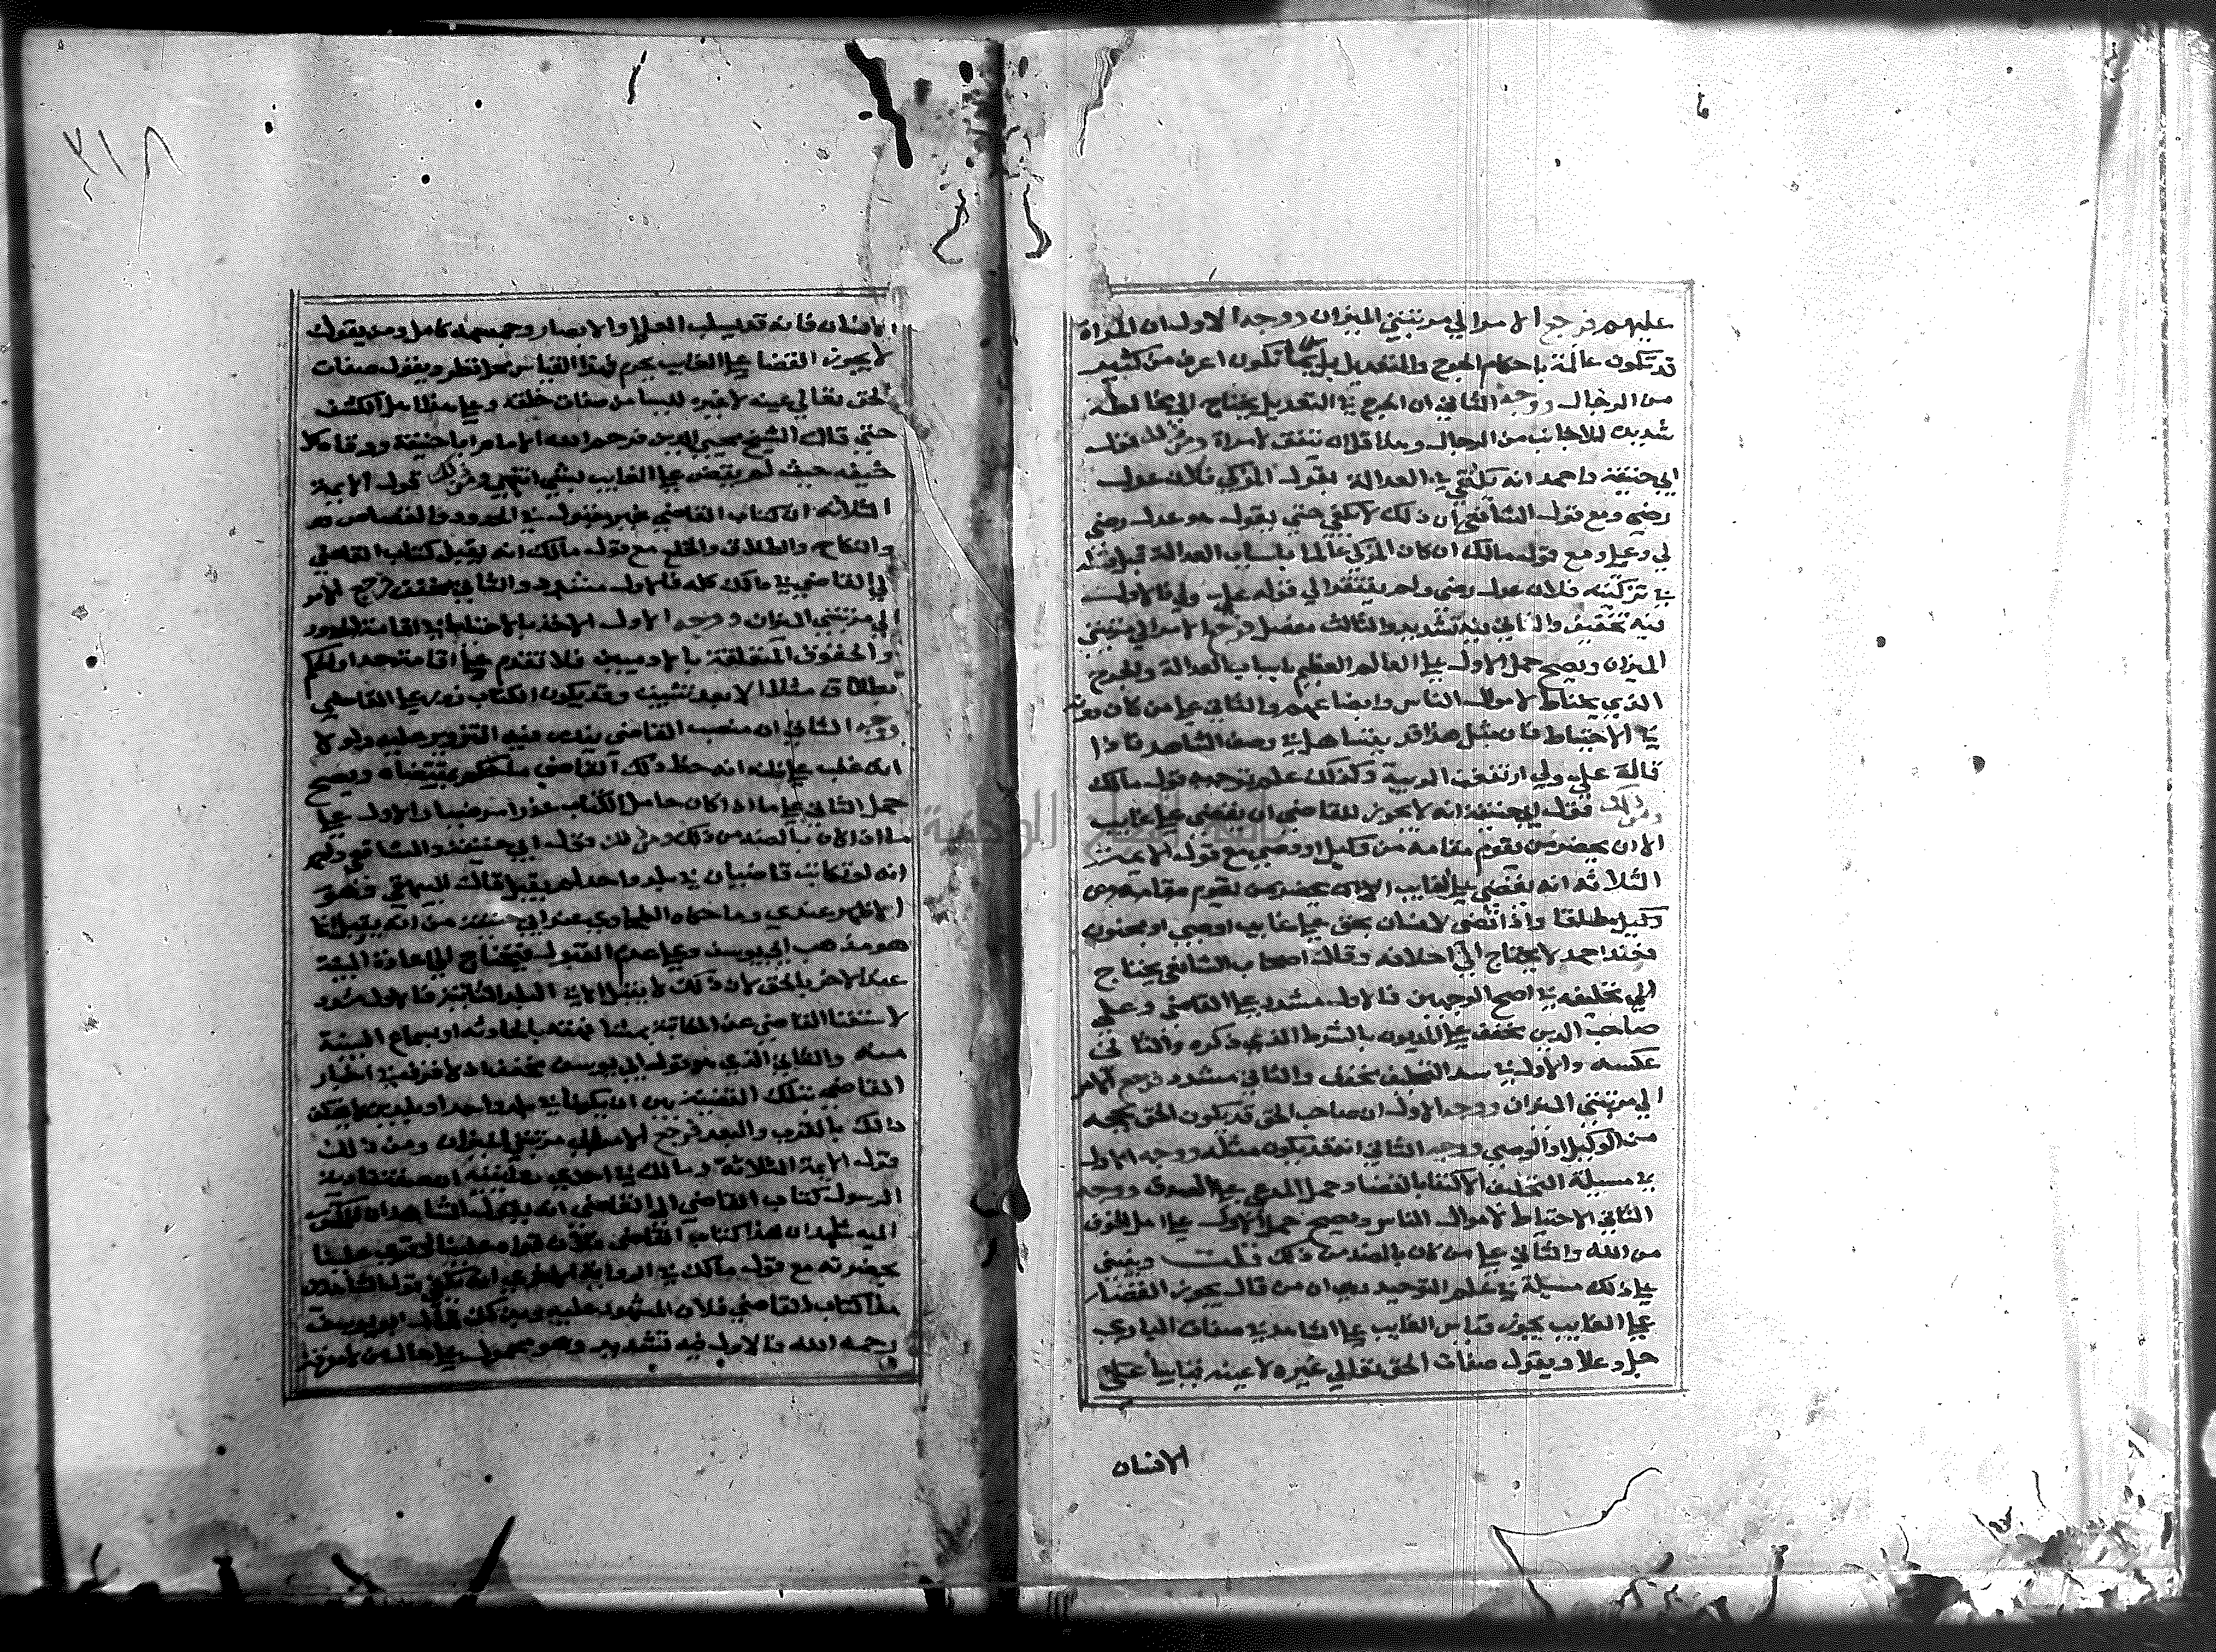 عليهم فرجع الامر الي مرتبتي الميزان ووجه الاول ان المراة
قد تكون عالمة باحكام الجرح والتعديل بل ربما تكون اعرف من كثير
من الرجال ووجه الثاني ان الجرح في التعديل يحتاج الي مخالطة
شديدة للاجانب من الرجال وهذا قل ان يتفق لامراة ومن ذلك قول
ابي حنيفة واحمد انه يكتفي في العدالة بقول المزكي فلان عدل
رضي ومع قول الشافعي ان ذلك لا يكفي حتي يقول هو عدل رضي
لي وعلي ومع قول مالك ان كان المزكي عالما باسباب العدالة قبل قوله
في تزكيته فلان عدل رضي ولم يفتقر الي قوله علي ولي فالاول
فيه تخفيف والثاني فيه تشديد والثالث مفصل فرجع الامر الي مرتبتي
الميزان ويصح حمل الاول علي العالم العظيم باسباب العدالة والجرح
الذي يحتاط لاموال الناس وابضاعهم والثاني علي من كان دونه
في الاحتياط فان مثل هذا قد يتساهل في وصف الشاهد فاذا
قال علي ولي ارتفعت الريبة وكذلك علم توجيه قول مالك
ومن ذلك قول ابي حنيفة انه لا يجوز للقاضي ان يقضي علي غايب
الا ان يحضر من يقوم مقامه من وكيل او وصي مع قول الايمة
الثلاثه انه يقضي علي الغايب الا ان يحضر من يقوم مقامه من
وكيل مطلقا واذا قضي لانسان بحق علي غايب او صبي او مجنون
فعند احمد لا يحتاج الي احلافه وقال اصحاب الشافعي يحتاج
الي تحليفه في اصح الوجهين فالاول مشدد علي القاضي وعلي
صاحب الدين مخفف علي المديون بالشرط الذي ذكره والثاني
عكسه والاول في مسيلة التحليف مخفف والثاني مشدد فرجع الامر
الي مرتبتي الميزان ووجه الاول ان صاحب الحق قد يكون الحق بحجه
من الوكيل او الوصي ووجه الثاني انه قد يكون مثله ووجه الاول
في مسيلة التحليف الاكتفا بالقضا وحمل المدعي علي الصدق ووجه
الثاني الاحتياط لاموال الناس ويصح حمل الاول علي اهل الخوف
من الله والثاني علي من كان بالضد من ذلك قلت وينبني
علي ذلك مسيلة في علم التوحيد وهي ان من قال يجوز القضا
علي الغايب يجوز قياس الغايب علي الشاهد في صفات الباري
جل وعلا ويقول صفات الحق تعالي غيره لا عينه قياسا علي
الانسان
الانسان فانه قد يسلب العلم او الابصار وجسمه كامل ومن يقول
لا يجوز القضا علي الغايب يحرم هذا القياس جملة ويقول صفات
الحق تعالي عينه لا غيره للبيان من صفات خلقه وعلي هذا اهل الكشف
حتي قال الشيخ محيي الدين فرحم الله الامام ابا حنيفة ووقاه كل
خيفه حيث لم يقض علي الغايب بشي انتهي ومن ذلك قول الايمة
الثلاثه ان كتاب القاضي غير مقبول في الحدود والقصاص
والنكاح والطلاق والخلع مع قول مالك انه يقبل كتاب القاضي
الي القاضي في ذلك كله فالاول مشدد والثاني مخفف فرجع الامر
الي مرتبتي الميزان ووجه الاول الاخذ بالاحتياط في اقامة الحدود
والحقوق المتعلقة بالادميين فلا نقدم علي اقامة حد او الحكم
بطلاق مثلا الا بعد تثبت وقد يكون الكتاب زور علي القاضي
ووجه الثاني ان منصب القاضي يندر فيه التزوير عليه ولولا
انه غلب علي ظنه انه حظ ذلك القاضي ما حكم بمقتضاه ويصح
حمل الثاني علي ما اذا كان حامل الكتاب عدلا مرضيا والاول علي
ما اذا كان بالضد من ذلك ومن ذلك قول ابي حنيفة والشافعي
انه لو تكاتب قاضيان في بلد واحد لم يقبل قال البيهقي وهو
الاظهر عندي وما حكاه الطحاوي عن ابي حنيفة من انه يقبل انما
هو مذهب ابي يوسف وعلي عدم القبول فيحتاج الي اعادة البينة
عند الاخر بالحق لان ذلك لا يقبل الا في البلد الثانية فالاول مشدد
لاستغنا القاضي عن المكاتبة بمشافهته بالحادثه او بسماع البينة
منه والثاني الذي هو قول ابي يوسف مخفف اذ لا فرق في اخبار
القاضي بتلك القضية بين ان يكونا في بلد واحد او بلدين
ذلك بالقرب والبعد فرجع الامر الي مرتبتي الميزان ومن ذلك
قول الايمة الثلاثة ومالك في احدي روايتيه ان صفة تادية
الرسول كتاب القاضي الي القاضي انه يقول الشاهدان للمكتوب
اليه نشهد ان هذا كتاب القاضي فلان قراه علينا او قري علينا
بحضرته مع قول مالك في الرواية الاخري انه يكفي قولهما
هذا كتاب القاضي فلان المشهود عليه ومن ذلك قال ابو يوسف
رحمه الله فالاول فيه تشديد وهو محمول علي حال من